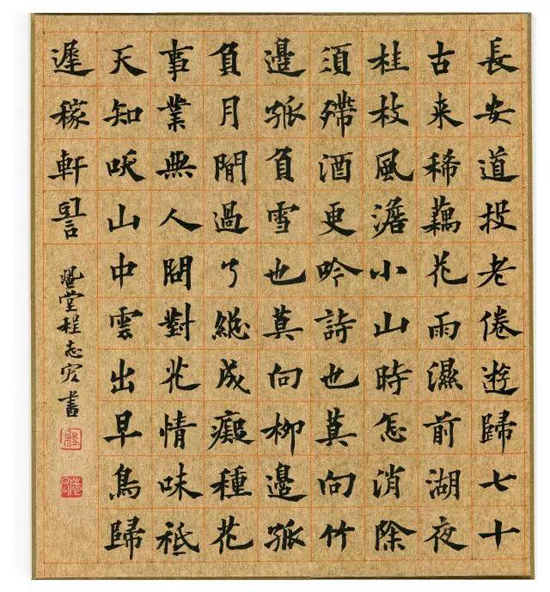 長安道投老倦遊歸七十
古来稀藕花雨濕前湖夜
桂枝風澹小山時怎消除
須殢酒更吟詩也莫向竹
邊孤負雪也莫向柳邊孤
負月閒過了總成癡種花
事業無人問對花情味秖
天知咲山中雲出早鳥歸
遲稼軒詞
堂程志宏書